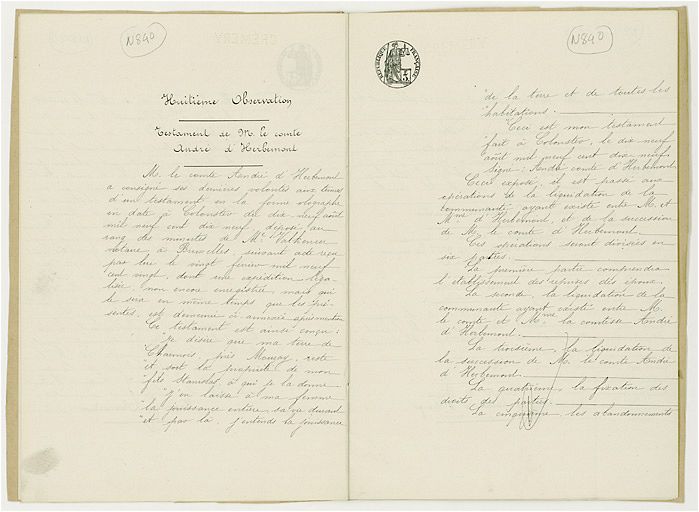 N890
Huitième Observation
Testament de M. le comte
André d'Herbemont
M. le comte André d'Herbemont
a consigné ses dernières volontés aux termes
d'un testament en la forme olographe
en date à Colonster du dix neuf août
mil neuf cent dix neuf déposé au
rang des minutes de Me
notaire à Bruxelles, suivant acte reçu
par lui le vingt février mil neuf
cent vingt, dont une expédition léga
lisée, non encore enregistrée mais qui
le sera en même temps que les pré-
sentes, est demeurée ci annexée après mention
Ce testament est ainsi conçu :
"Je désire que ma terre de
"Charmois, près Mouzay, reste
"et soit la propriété de mon
"fils Stanislas, à qui je la donne.
"J'en laisse à ma femme
"la jouissance entière, sa vie durant
"et par là, j'entends la jouissance
N890
REPUBLIQUE FRANÇAISE
"de la terre et de toutes les
"habitations.
"Ceci est mon testament
"fait à Colonster, le dix neuf
"août mil neuf cent dix neuf.
"Signé : André comte d'Herbemont
Ceci exposé, il est passé aux
opérations de la liquidation de la
communauté ayant existé entre M. et
Mme d'Herbemont, et de la succession
de M. le comte d'Herbemont.
Ces opérations seront divisées en
six parties.
La première partie comprendra
l'établissement des reprises des époux.
La seconde, la liquidation de la
communauté ayant existé entre M.
le comte et Mme la comtesse André
d'Herbemont.
La troisième, la liquidation de
la succession de M. le comte André
d'Herbemont.
La quatrième, la fixation des
droits des parties.
La cinquième, les abandonnements